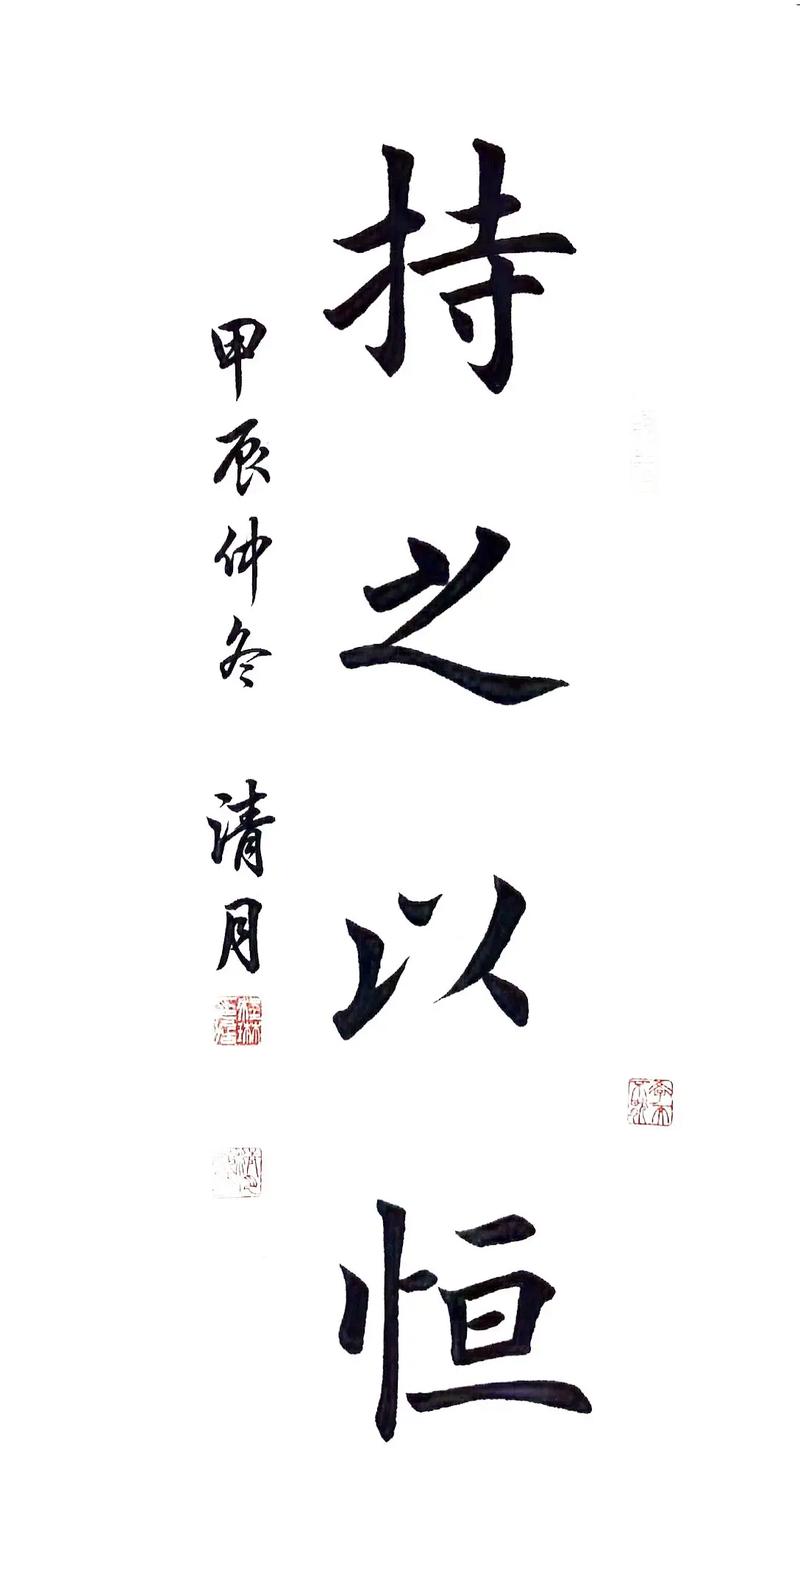 持之以恒
甲辰仲冬 清月